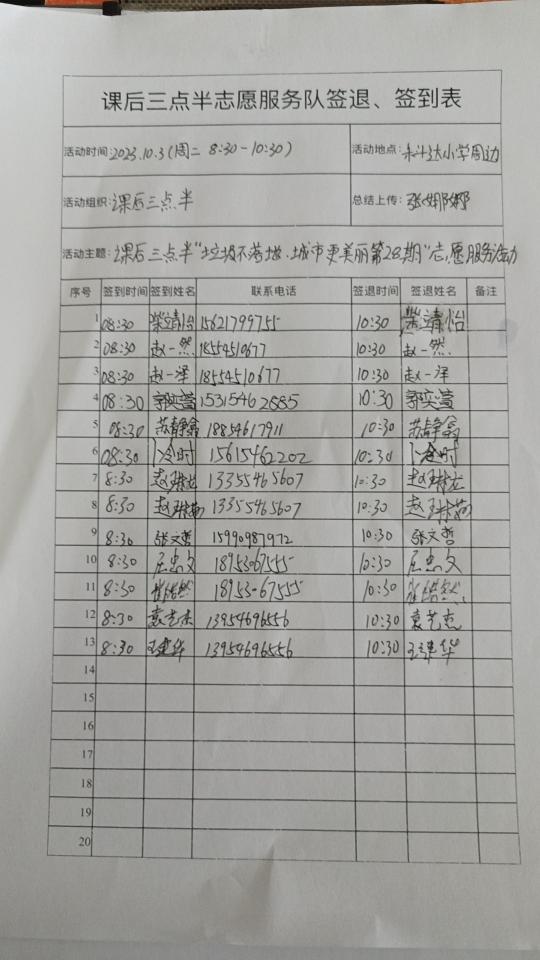 课后三点半志愿服务队签退、签到表
活动时间: 2023.10.3 (周二 8:30-10:30) 活动地点: 小学周边
活动组织: 课后三点半 总结上传: 张娜娜
活动主题: 课后三点半“垃圾不落地.城市更美丽第28期”志愿服务活动
序号 签到时间 签到姓名 联系电话 签退时间 签退姓名 备注
1 08:30 柴靖怡 15621799755 10:30 柴靖怡
2 08:30 赵一然 18554510677 10:30 赵一然
3 08:30 赵一泽 18554510677 10:30 赵一泽
4 08:30 郭奕萱 15315462885 10:30 郭奕萱
5 08:30 苏静鑫 18854617911 10:30 苏静鑫
6 08:30 15615462202 10:30
7 8:30 赵琳龙 13355465607 10:30 赵琳龙
8 8:30 赵琳茹 13355465607 10:30 赵琳茹
9 8:30 张文哲 15990987972 10:30 张文哲
10 8:30 屈忠文 18953067555 10:30 屈忠文
11 8:30 18953067555 10:30
12 8:30 袁艺杰 13954696556 10:30 袁艺杰
13 8:30 王建华 13954696556 10:30 王建华
14
15
16
17
18
19
20